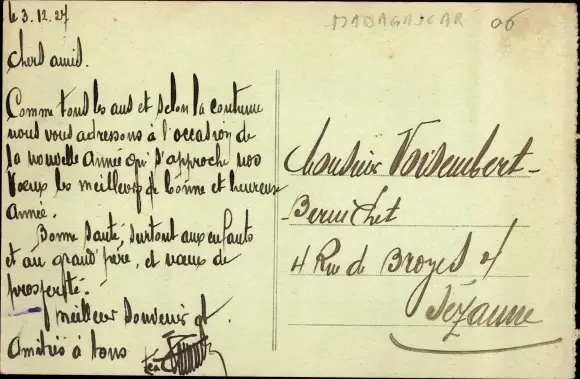 le 3.12.27
MADAGASCAR 06
Chers amis.
Comme tous les ans et selon la coutume
nous vous adressons à l'occasion de
la nouvelle année qui s'approche nos
Vœux les meilleurs de bonne et heureuse
année.
Bonne santé, surtout aux enfants
et au grand'père, et vœux de
prospérité.
Meilleur souvenir et
Amitiés à tous
Monsieur Voisembert-
Beruchet
4 Rue de Broyes
Sézanne